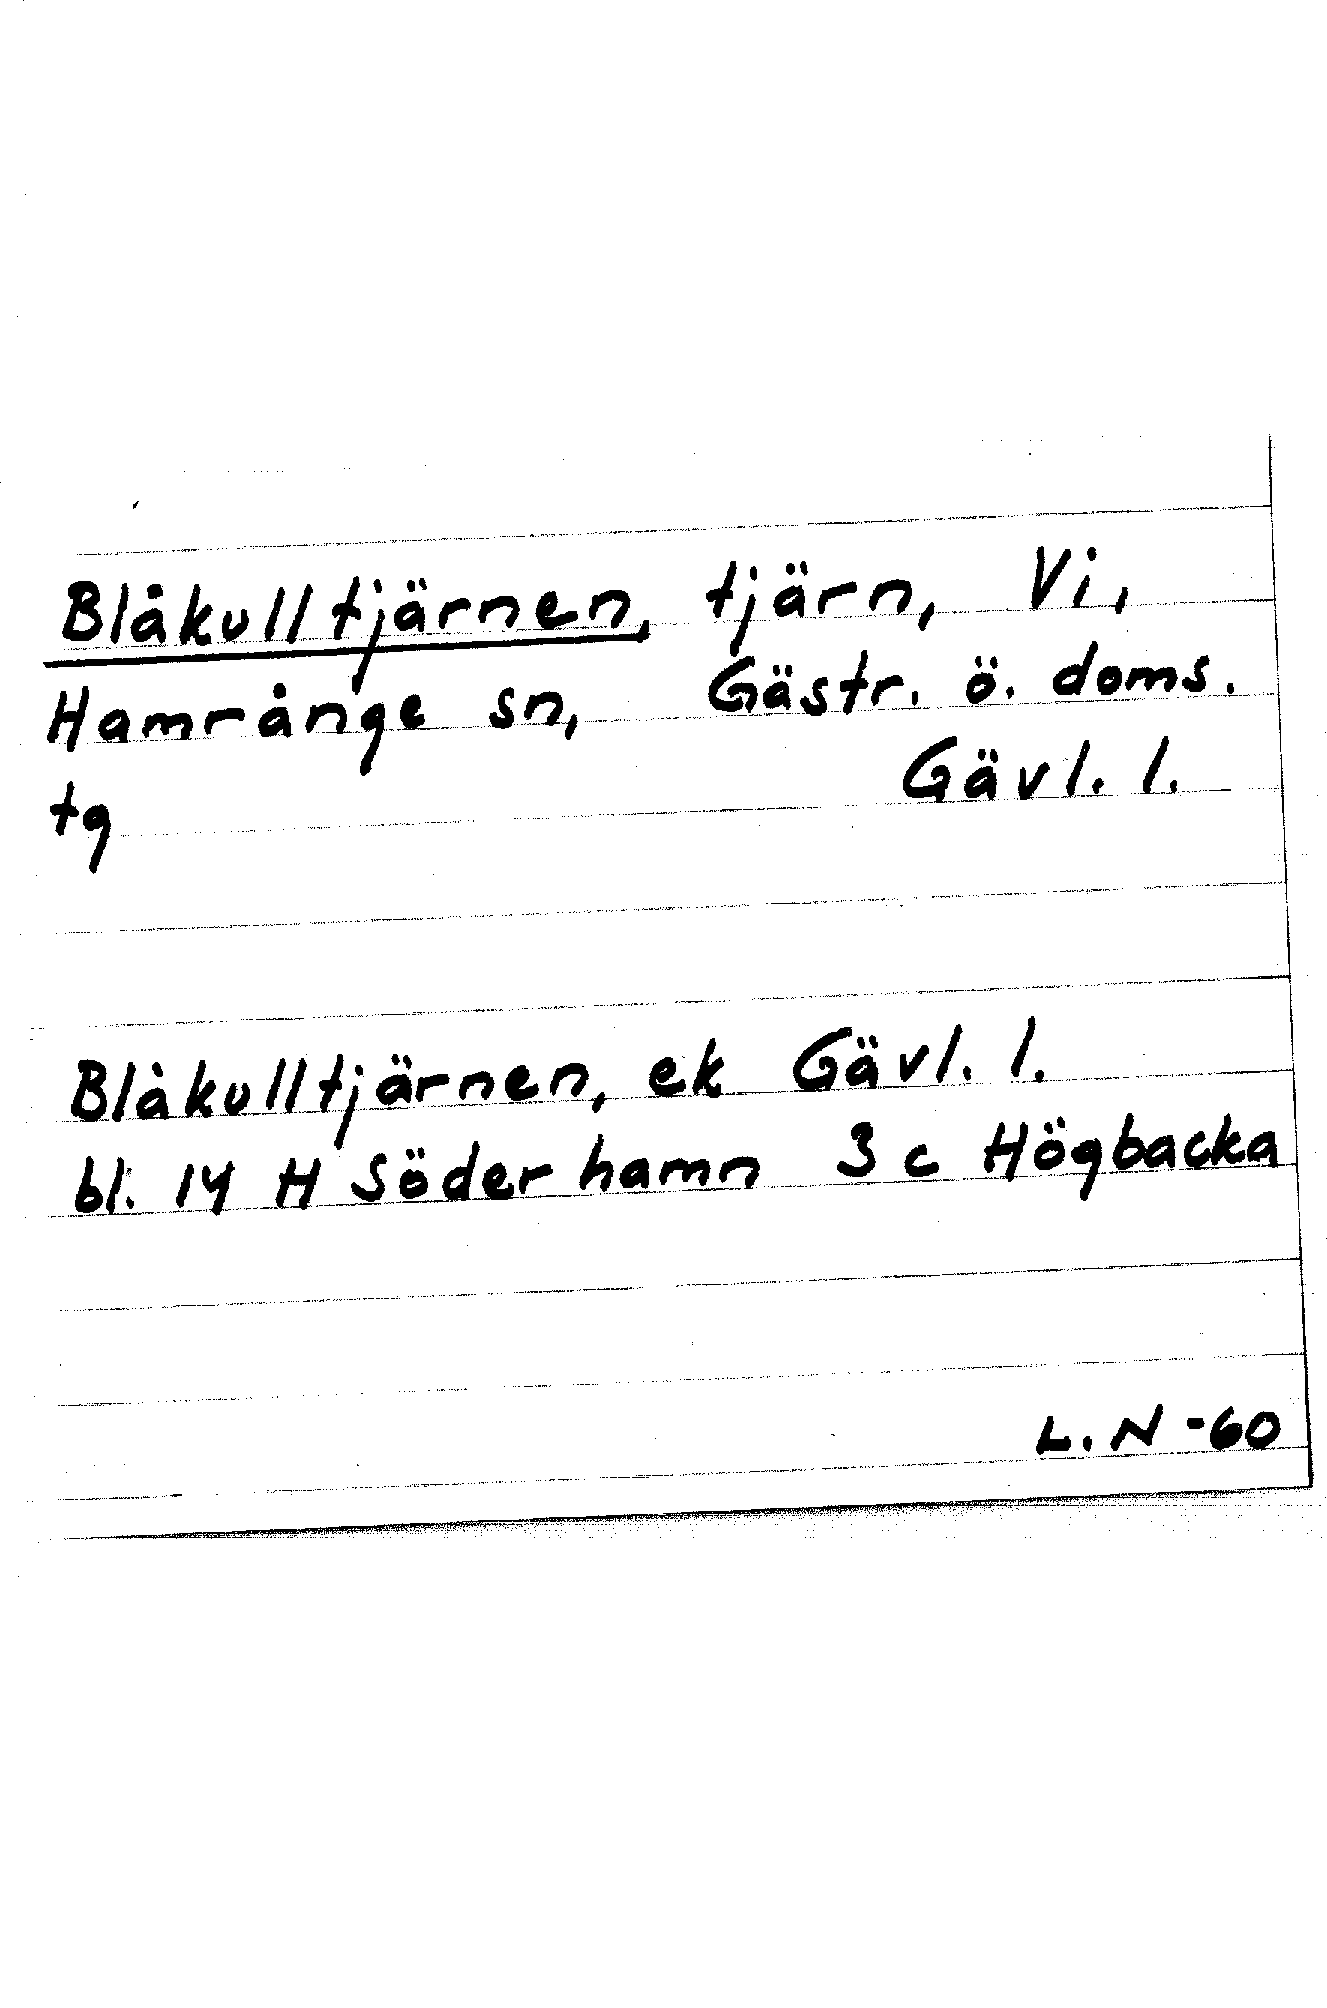 Blåkulltjärnen, tjärn, Vi,
Hamrånge sn, Gästr. ö. doms.
tg Gävl. l.
Blåkulltjärnen, ek Gävl. l.
bl. 14 H Söderhamn 3 c Högbacka
L. N -60